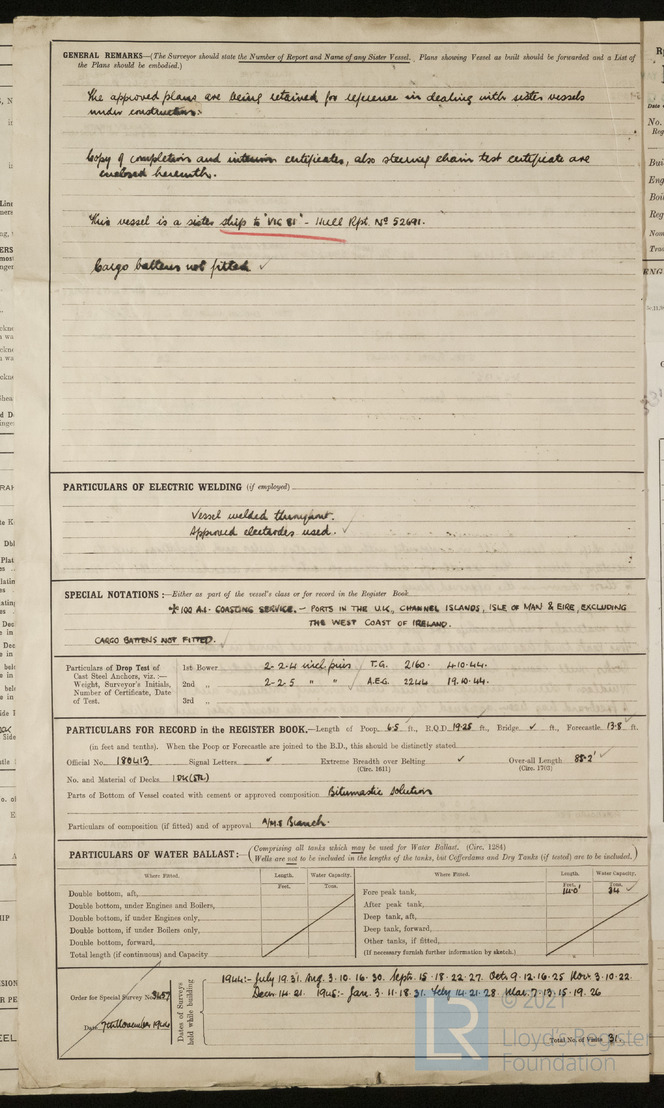 GENERAL REMARKS—(The Surveyor should state the Number of Report and Name of any Sister Vessel. Plans showing Vessel as built should be forwarded and a List of
the Plans should be embodied.)
The approved plans are being retained for reference in dealing with sister vessels
under construction.
Copy of completion and interim certificates, also steering chain test certificate are
enclosed herewith.
This vessel is a sister ship to "VIC 81" - Hull Rpt. Nº 52691.
Cargo battens not fitted ✓
PARTICULARS OF ELECTRIC WELDING (if employed)
Vessel welded throughout.
Approved electrodes used. ✓
SPECIAL NOTATIONS:—Either as part of the vessel's class or for record in the Register Book
✠100 A.1. COASTING SERVICE. — PORTS IN THE U.K., CHANNEL ISLANDS, ISLE OF MAN & EIRE, EXCLUDING
THE WEST COAST OF IRELAND.
CARGO BATTENS NOT FITTED. ✓
Particulars of Drop Test of
Cast Steel Anchors, viz. :—
Weight, Surveyor's Initials,
Number of Certificate, Date
of Test.
1st Bower 2-2-4 incl. pin T.G. 2160. 4.10.44.
2nd " 2-2-5 " " A.E.G. 2244 19.10.44.
3rd "
PARTICULARS FOR RECORD in the REGISTER BOOK.—Length of Poop 6.5 ft., R.Q.D. 19.25 ft., Bridge ✓ ft., Forecastle 13.8 ft.
(in feet and tenths). When the Poop or Forecastle are joined to the B.D., this should be distinctly stated
Official No. 180413 Signal Letters ✓ Extreme Breadth over Belting ✓ Over-all Length 85.2' ✓
(Circ. 1611) (Circ. 1703)
No. and Material of Decks 1 DK (STL)
Parts of Bottom of Vessel coated with cement or approved composition Bitumastic Solution
Particulars of composition (if fitted) and of approval Branch.
PARTICULARS OF WATER BALLAST:— (Comprising all tanks which may be used for Water Ballast. (Circ. 1284)
Wells are not to be included in the lengths of the tanks, but Cofferdams and Dry Tanks (if tested) are to be included.)
Where Fitted. Length. Water Capacity. Where Fitted. Length. Water Capacity.
Feet. Tons. Feet. Tons.
Double bottom, aft, Fore peak tank, 14.0' 34 ✓
Double bottom, under Engines and Boilers, After peak tank,
Double bottom, if under Engines only, Deep tank, aft,
Double bottom, if under Boilers only, Deep tank, forward,
Double bottom, forward, Other tanks, if fitted,
Total length (if continuous) and Capacity (If necessary furnish further information by sketch.)
Order for Special Survey No. 3457
Date 7th November 1944
Dates of Surveys
held while building
1944:- July 19.31. Aug. 3.10.16.30. Sept. 15.18.22.27. Oct. 9.12.16.25 Nov. 3.10.22.
Dec. 14.21. 1945:- Jan. 3.11.18.31. Feby 14.21.28. Mar. 7.13.15.19.26
Total No. of Visits 31.
LR
© 2021
Lloyd's Register
Foundation